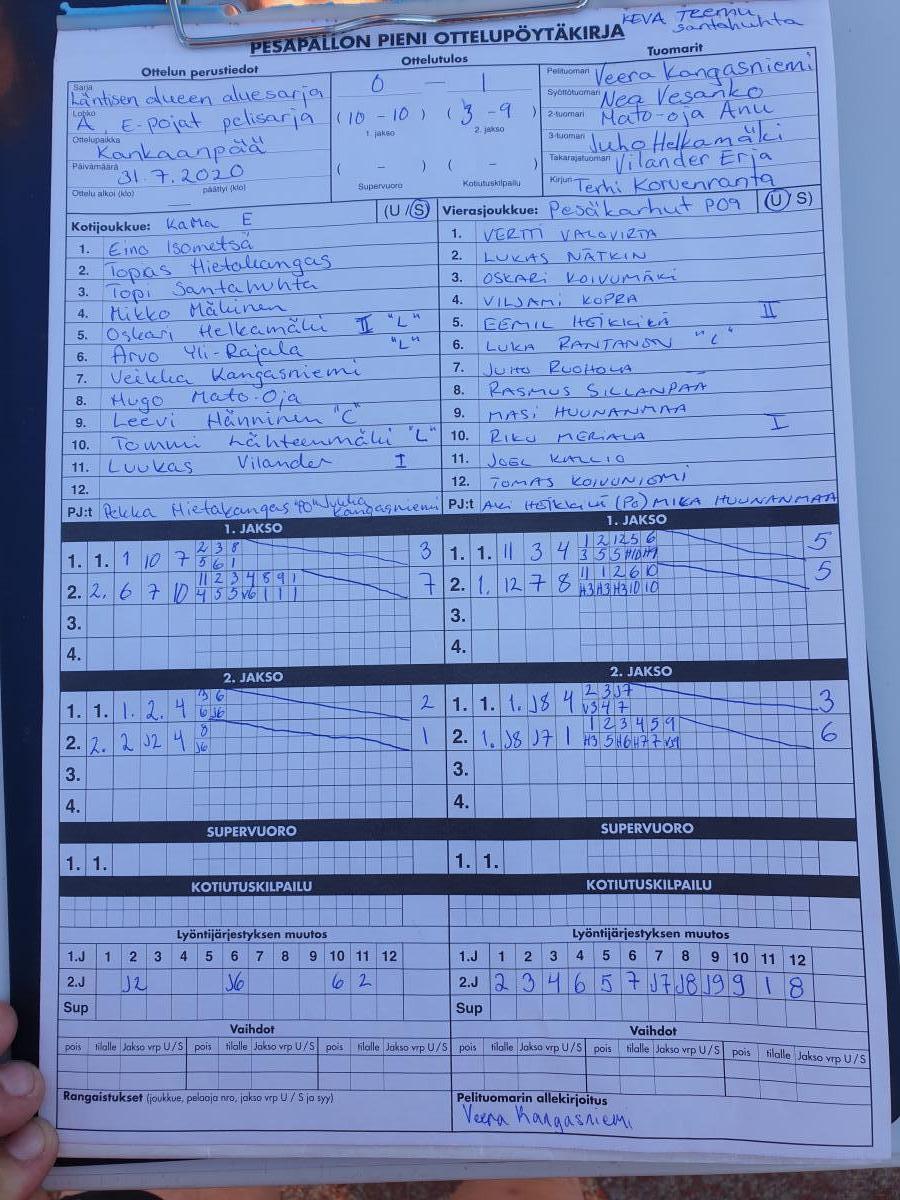 KEVA Teemu
Santahuhta
PESÄPALLON PIENI OTTELUPÖYTÄKIRJA
Ottelun perustiedot
Sarja
Läntisen alueen aluesarja
Lohko
A, E-pojat pelisarja
Ottelupaikka
Kankaanpää
Päivämäärä
31.7.2020
Ottelu alkoi (klo) päättyi (klo)
Ottelutulos
0 – 1
(10 - 10) (3 - 9)
1. jakso 2. jakso
( - ) ( - )
Supervuoro Kotiutuskilpailu
Tuomarit
Pelituomari Veera Kangasniemi
Syöttötuomari Nea Vesanko
2-tuomari Mato-oja Anu
3-tuomari Juho Helkamäki
Takarajatuomari Vilander Erja
Kirjuri Terhi Korvenranta
Kotijoukkue: KaMa E (U / S)
1. Eino Isometsä
2. Topas Hietakangas
3. Topi Santahuhta
4. Mikko Mäkinen
5. Oskari Helkamäki II "L"
6. Arvo Yli-Rajala "L"
7. Veikka Kangasniemi
8. Hugo Mato-Oja
9. Leevi Hänninen "C"
10. Tommi Lähteenmäki "L"
11. Luukas Vilander I
12.
PJ:t Pekka Hietakangas "PO" Jukka Kangasniemi
Vierasjoukkue: Pesäkarhut P09 (U / S)
1. VERTTI VALOVIRTA
2. LUKAS NÄTKIN
3. OSKARI KOIVUMÄKI
4. VILJAMI KOPRA
5. EEMIL HEIKKILÄ II
6. LUKA RANTANEN "C"
7. JUHO RUOHOLA
8. RASMUS SILLANPÄÄ
9. MASI HUUNANMAA
10. RIKU MERIALA I
11. JOEL KALLIO
12. TOMAS KOIVUNIEMI
PJ:t AKI HEIKKILÄ (PO) MIKA HUUNANMAA
1. JAKSO
1. 1. 1 10 7 2 3 8 3
5 6 1
2. 2. 6 7 10 11 2 3 4 8 9 1 7
4 5 5 V6 1 1 1
3.
4.
1. JAKSO
1. 1. 11 3 4 1 2 12 5 6 5
3 5 5 H10 H9
2. 1. 12 7 8 11 1 2 6 10 5
H3 H3 H3 10 10
3.
4.
2. JAKSO
1. 1. 1. 2. 4 3 6 2
6 J6
2. 2. 2 J2 4 8 1
J6
3.
4.
2. JAKSO
1. 1. 1. J8 4 2 3 J7 3
V3 4 7
2. 1. J8 J7 1 1 2 3 4 5 9 6
H3 5 H6 H7 7 VJ9
3.
4.
SUPERVUORO
1. 1.
SUPERVUORO
1. 1.
KOTIUTUSKILPAILU
KOTIUTUSKILPAILU
Lyöntijärjestyksen muutos
1.J 1 2 3 4 5 6 7 8 9 10 11 12
2.J J2 J6 6 2
Sup
Lyöntijärjestyksen muutos
1.J 1 2 3 4 5 6 7 8 9 10 11 12
2.J 2 3 4 6 5 7 J7 J8 J9 9 1 8
Sup
Vaihdot
pois tilalle Jakso vrp U / S pois tilalle Jakso vrp U / S pois tilalle Jakso vrp U / S
Vaihdot
pois tilalle Jakso vrp U / S pois tilalle Jakso vrp U / S pois tilalle Jakso vrp U / S
Rangaistukset (joukkue, pelaaja nro, jakso vrp U / S ja syy)
Pelituomarin allekirjoitus
Veera Kangasniemi